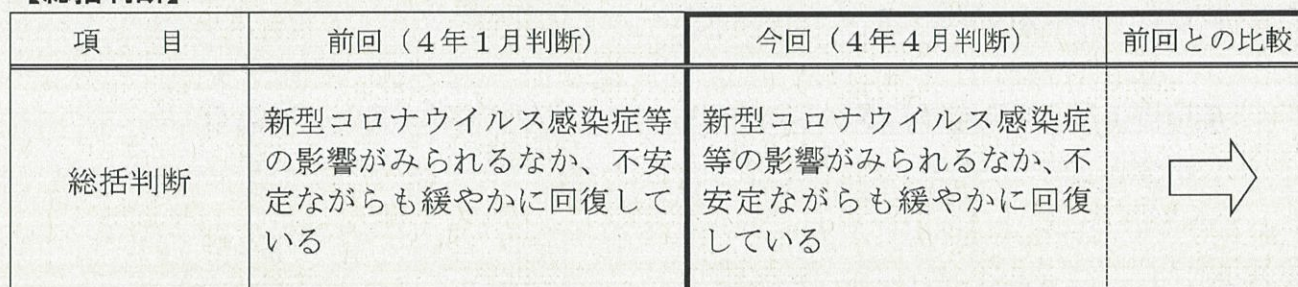 項 目 前回（4年1月判断） 今回（4年4月判断） 前回との比較
総括判断
新型コロナウイルス感染症等
の影響がみられるなか、不安
定ながらも緩やかに回復して
いる
新型コロナウイルス感染症
等の影響がみられるなか、不
安定ながらも緩やかに回復
している